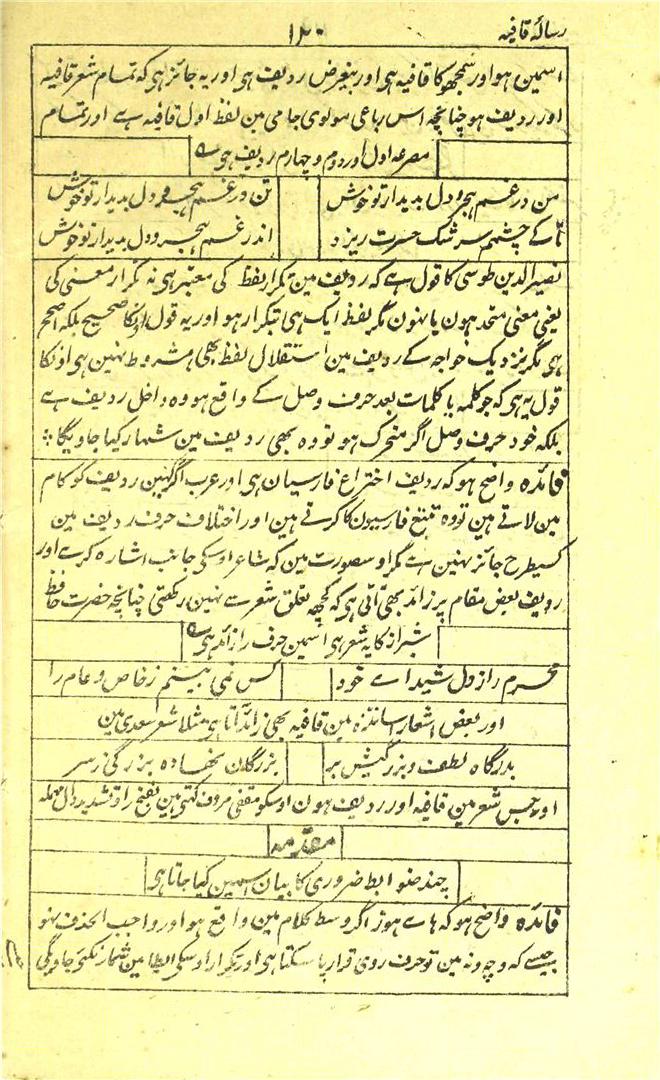 رسالۂ قافیہ
۱۴۰
اسمین ہو اور سمجھو کا قافیہ ہی اور بیغرض ردیف ہی اور یہ جائز ہی کہ تمام شعر قافیہ
اور ردیف ہو چنانچہ اس رباعی مولوی جامی مین لفظ اول قافیہ ہے اور تمام
مصرعہ اول اور دوم و چہارم ردیف ہی
من در غم ہجر و دل بدیدار تو خوش
تن در غم ہجر و دل بدیدار تو خوش
تا کے چشمم سرشک حسرت ریزد
اندر غم ہجر و دل بدیدار تو خوش
نصیر الدین طوسی کا قول ہے کہ ردیف مین تکرار لفظ کی معتبر ہی نہ تکرار معنی کی
یعنی معنی متحد ہون یا نہون مگر لفظ ایک ہی بتکرار ہو اور یہ قول اونکا صحیح بلکہ اصح
ہی مگر نزدیک خواجہ کے ردیف مین استقلال لفظ بھی مشروط نہین ہی اونکا
قول یہ ہی کہ جو کلمہ یا کلمات بعد حرف وصل کے واقع ہو وہ داخل ردیف ہے
بلکہ خود حرف وصل اگر متحرک ہو تو وہ بھی ردیف مین شمار کیا جاویگا
فائدہ واضح ہو کہ ردیف اختراع فارسیان ہی اور عرب اگر کہین ردیف کو کام
مین لاتے ہین تو وہ تتبع فارسیون کا کرتے ہین اور اختلاف حرف ردیف مین
کسیطرح جائز نہین ہے مگر اوسصورت مین کہ شاعر اوسکی جانب اشارہ کرے اور
ردیف بعض مقام پر زائد بھی آتی ہی کہ کچھ تعلق شعر سے نہین رکھتی چنانچہ حضرت حافظ
شیراز کا یہ شعر ہی اسمین حرف را زائد ہی
محرم راز دل شیداے خود
کس نمی بینم ز خاص و عام را
اور بعض اشعار اساتذہ مین قافیہ بھی زائد آتا ہی مثلا شعر سعدی مین
بدرگاہ لطف و بزرگیش بر
بزرگان نہادہ بزرگی ز سر
اور جس شعر مین قافیہ اور ردیف ہون اوسکو مقفی مردف کہتی ہین بفتح را و تشدید دال مہملہ
مقدمہ
چند ضوابط ضروری کا بیان اسمین کیا جاتا ہی
فائدہ واضح ہو کہ ہاے ہوز اگر وسط کلام مین واقع ہو اور واجب الحذف نہو
جیسے کہ و چہ و نہ مین تو حرف روی قرار پا سکتا ہی اور تکرار اوسکی ایطا مین شمار نکئی جاویگی